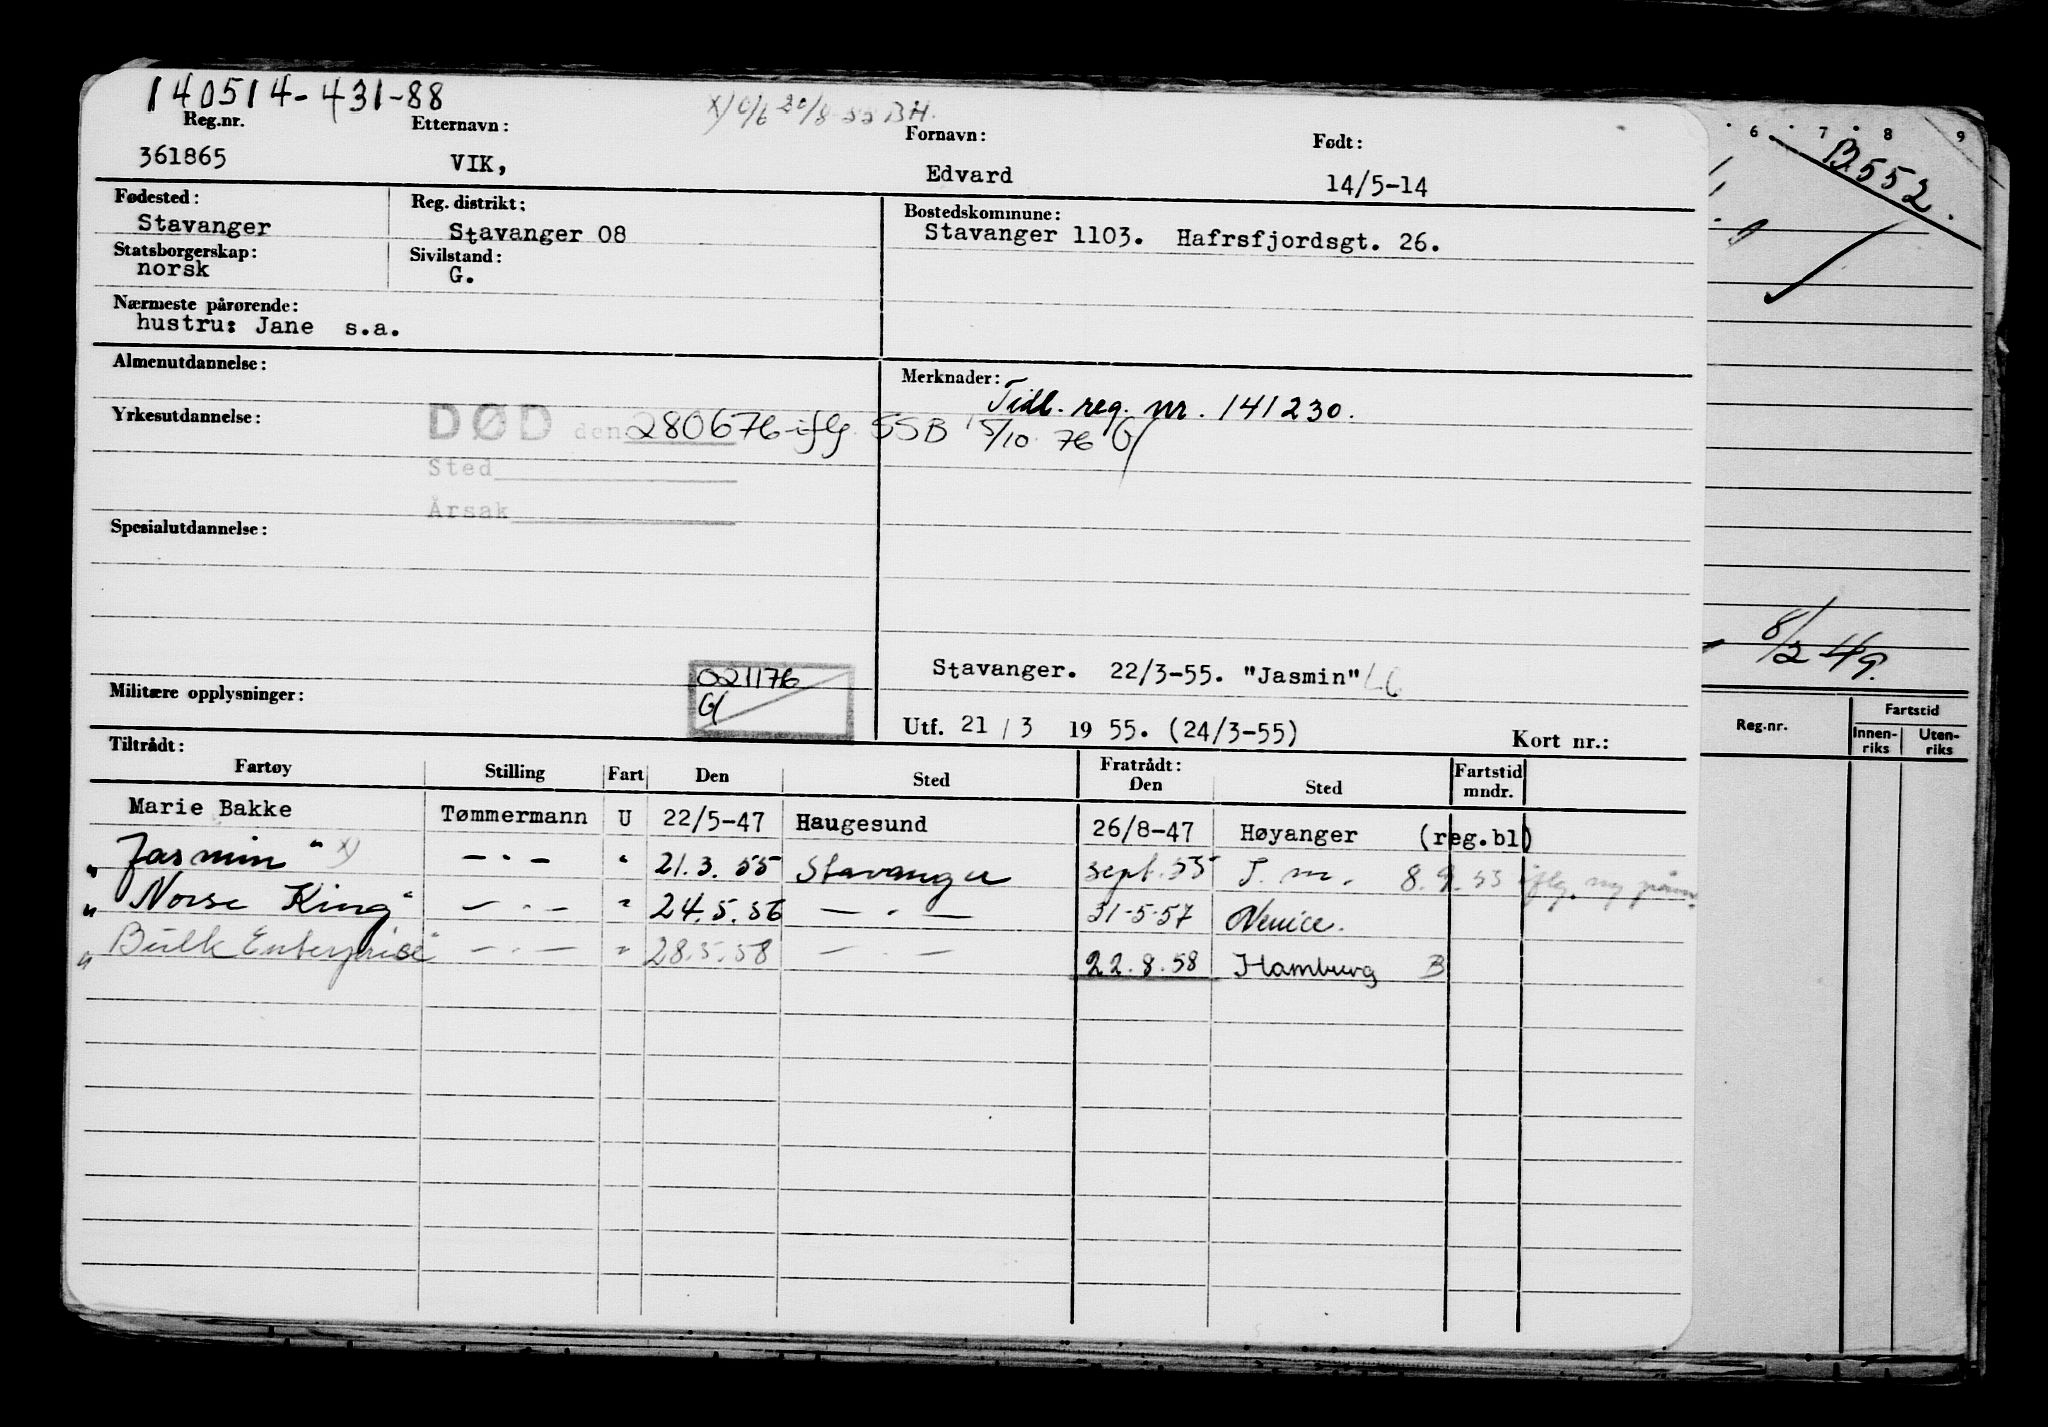 140514-431-88
Reg.nr. Etternavn: Fornavn: Født:
361865 VIK, Edvard 14/5-14
Fødested: Reg. distrikt: Bostedskommune:
Stavanger Stavanger 08 Stavanger 1103. Hafrsfjordsgt. 26.
Statsborgerskap: Sivilstand:
norsk G.
Nærmeste pårørende:
hustru: Jane s.a.
Almenutdannelse: Merknader:
Tidl. reg. nr. 141230.
Yrkesutdannelse:
DØD den 280676 iflg. SSB 5/10 76 G/
Sted
Årsak
Spesialutdannelse:
Stavanger. 22/3-55. "Jasmin"
Militære opplysninger: 021176
G/
Utf. 21 / 3 19 55. (24/3-55) Kort nr.:
Tiltrådt: Fratrådt:
Fartøy Stilling Fart Den Sted Den Sted Fartstid mndr.
Marie Bakke Tømmermann U 22/5-47 Haugesund 26/8-47 Høyanger (reg.bl)
"Jasmin" x) — " — " 21.3.55 Stavanger sept. 55 T.m. 8.9.55 iflg. ny
"Norse King" — " — " 24.5.56 — " — 31-5-57 Venice.
"Bulk Enterprise" — " — " 28.5.58 — " — 22.8.58 Hamburg B
6 7 8 9
B552.
8/2 49.
Reg.nr. Fartstid
Innenriks Utenriks